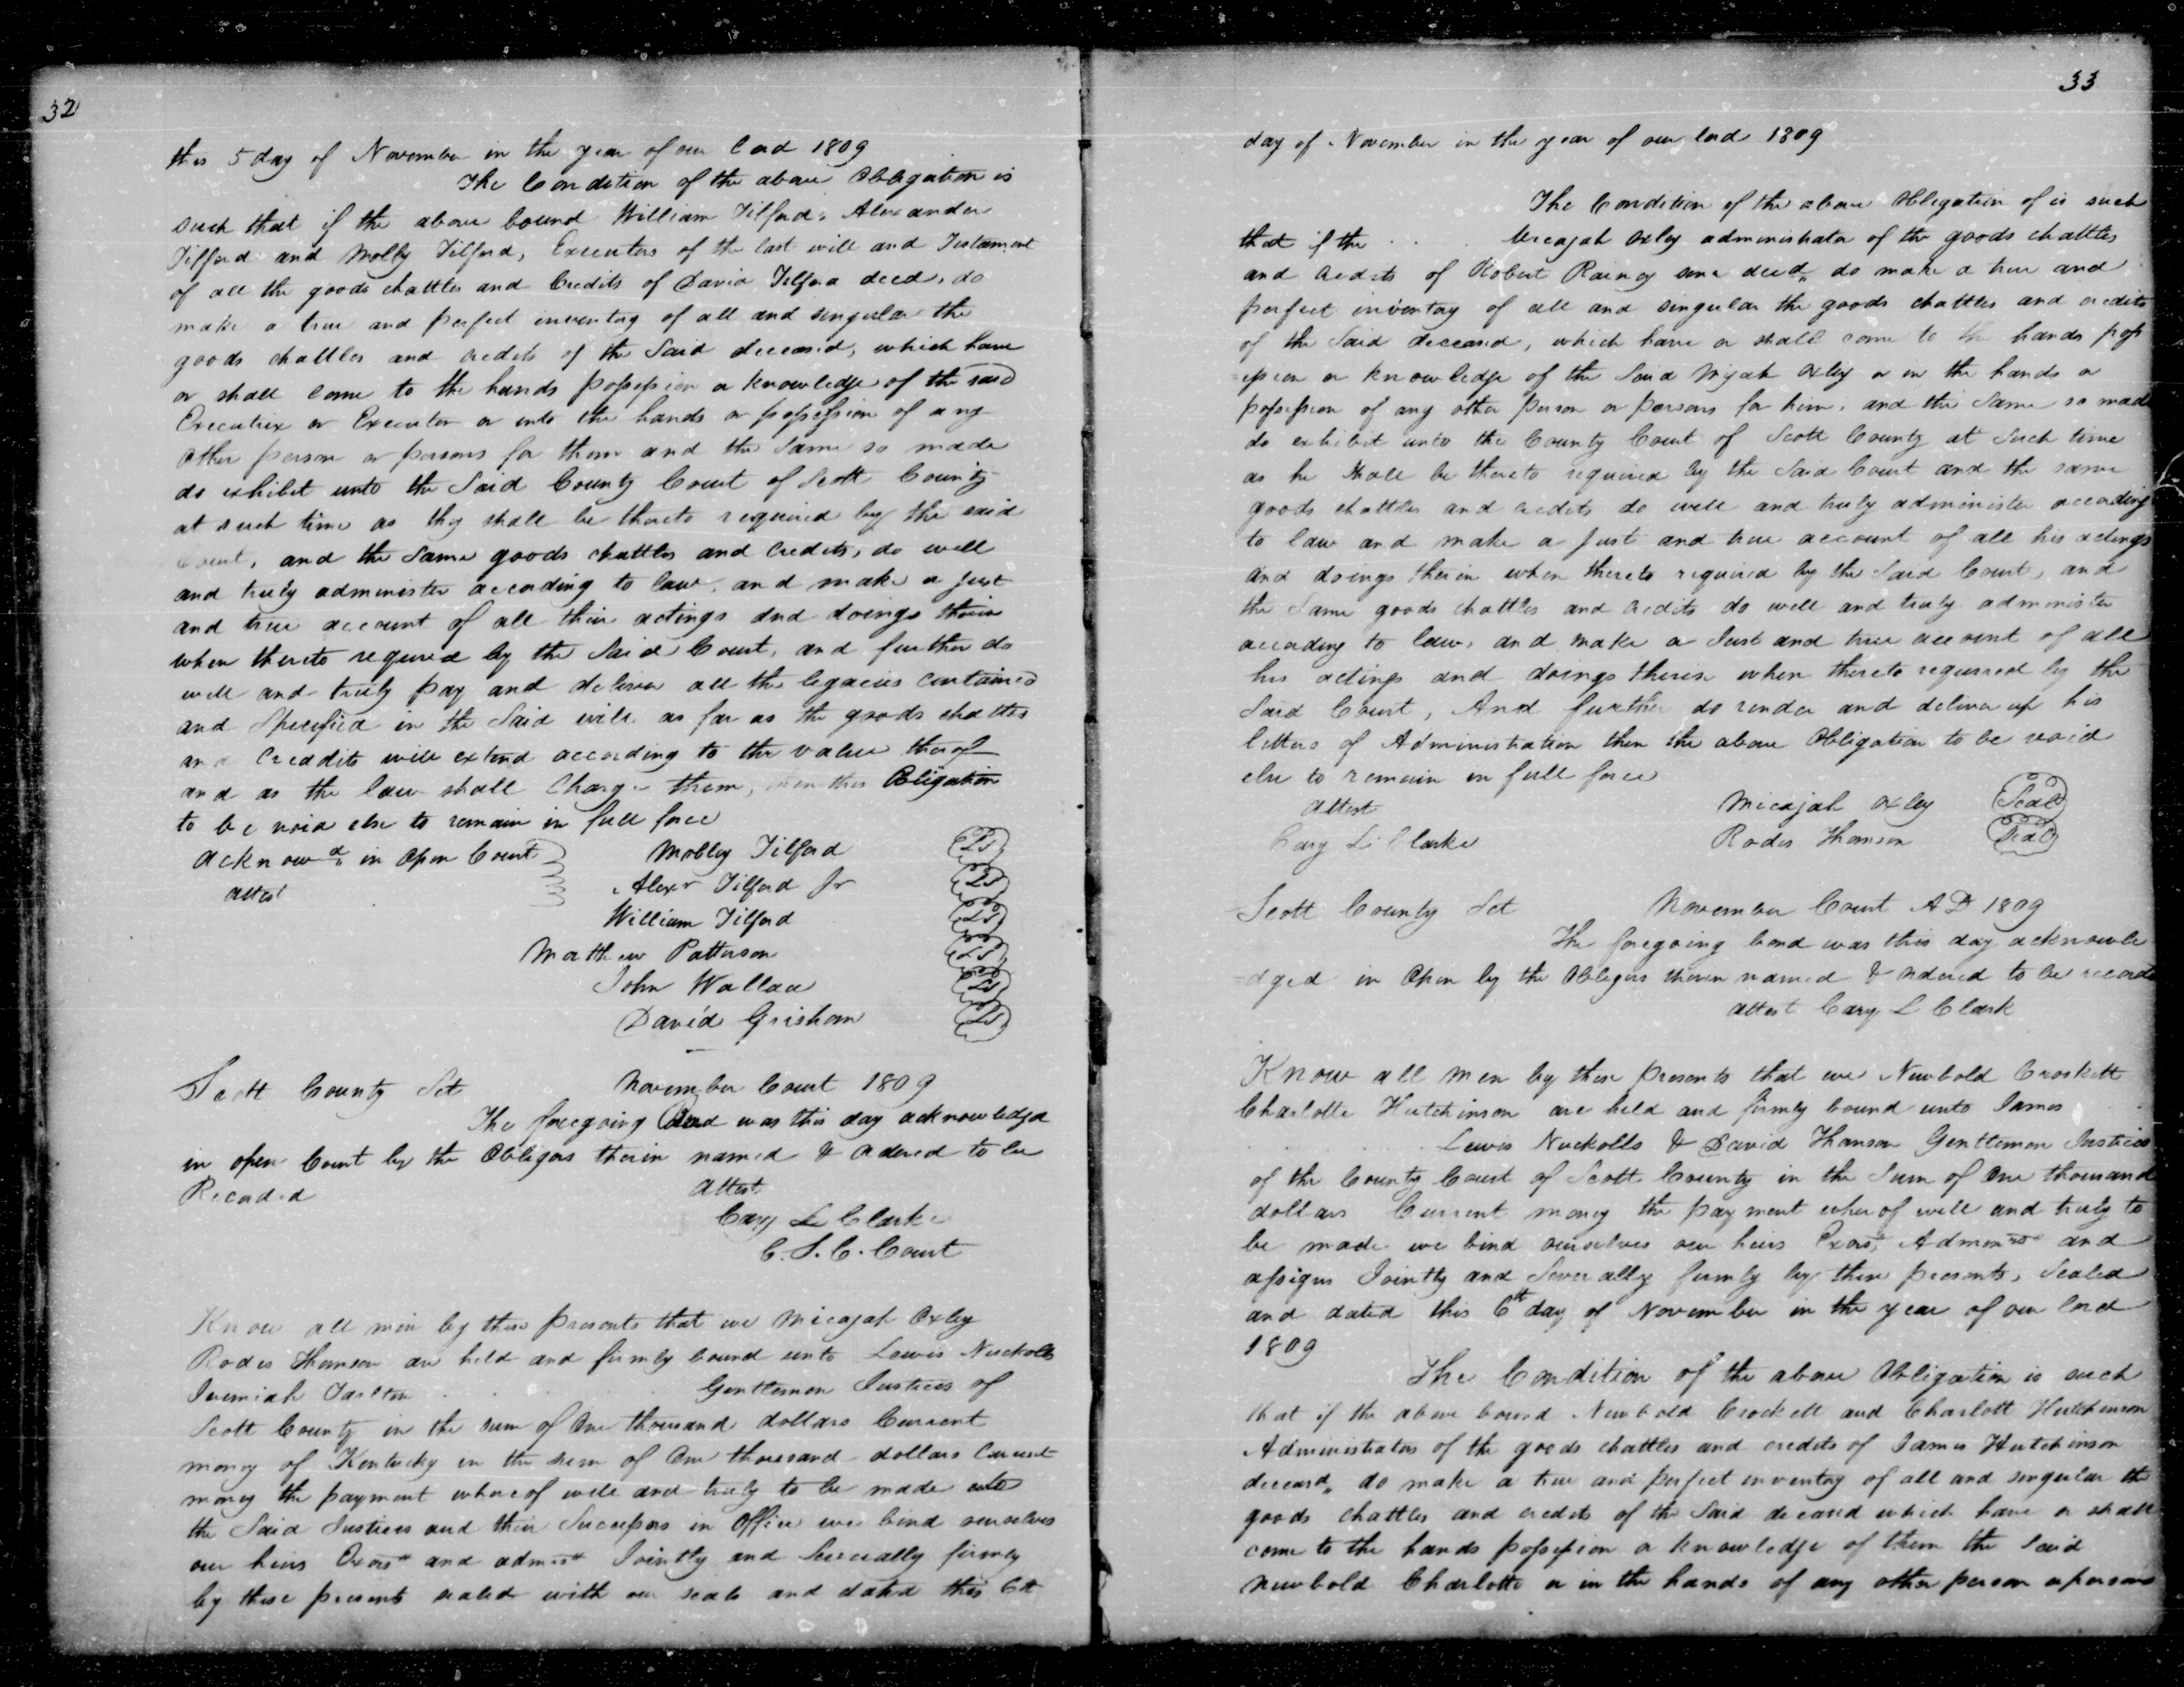 32
this 5 day of November in the year of our Lord 1809
The Condition of the above Obligation is
such that if the above bound William Tilford, Alexander
Tilford and Molly Tilford, Executors of the last will and Testament
of all the goods chattles and Credits of David Tilford decd, do
make a true and perfect inventory of all and singular the
goods chattles and credits of the Said deceased, which have
or shall come to the hands possession or knowledge of the said
Executrix or Executor or into the hands or possession of any
other person or persons for them and the Same so made
do exhibit unto the Said County Court of Scott County
at such time as they shall be thereto required by the said
Court, and the Same goods chattles and Credits, do well
and truly administer according to law, and make a just
and true account of all their actings and doings therein
when thereto required by the Said Court, and further do
well and truly pay and deliver all the legacies contained
and Specified in the Said will as far as the goods chattles
and Credits will extend according to the value therof
and as the law shall Charge them, then this Obligation
to be void else to remain in full force
acknowd in Open Court Molley Tilford LS
attest Alexr Tilford Jr LS
William Tilford LS
Matthew Patterson LS
John Wallace LS
David Grisham LS
Scott County Sct November Court 1809
The foregoing Bond was this day acknowledged
in open Court by the Obligors therein named & ordered to be
Recorded attest
Cary L Clarke
C. S. C. Court
Know all men by these presents that we Micajah Oxley
Rodes Thomson are held and firmly bound unto Lewis Nuckolls
Jeremiah Tarlton . . . Gentlemen Justices of
Scott County in the sum of One thousand dollars Current
money of Kentucky in the sum of One thousand dollars Current
money the payment whereof well and truly to be made unto
the Said Justices and their Successors in Office we bind ourselves
our heirs Exors and admors Jointly and Severally firmly
by these presents sealed with our seals and dated this 6th
33
day of November in the year of our lord 1809
The Condition of the above Obligation of is such
that if the . . . Micajah Oxley administrator of the goods chattles
and credits of Robert Rainey senr decd, do make a true and
perfect inventory of all and singular the goods chattles and credits
of the Said deceased, which have or shall come to the hands poss
=ession or knowledge of the Said Mijah Oxley or in the hands or
possession of any other person or persons for him, and the Same so made
do exhibit unto the County Court of Scott County at Such time
as he Shall be thereto required by the Said Court and the same
goods chattles and credits do well and truly administer according
to law and make a just and true account of all his actings
and doings therin when thereto required by the Said Court, and
the Same goods chattles and credits do well and truly administer
according to law, and make a Just and true account of all
his actings and doings therin when thereto requirred by the
Said Court, And further do render and deliver up his
letters of Administration then the above Obligation to be void
else to remain in full force
attest Micajah Oxley Seal
Cary L Clarke Rodes Thomson Seal
Scott County Sct November Court AD 1809
The foregoing bond was this day acknowle
=dged in Open by the Obligors therin named & ordered to be record
attest Cary L Clark
Know all men by these presents that we Newbold Crockett
Charlotte Hutchinson are held and firmly bound unto James
. . . Lewis Nuckolls & David Thomson Gentlemen Justices
of the County Court of Scott County in the Sum of One thousand
dollars Current money the payment wherof well and truly to
be made we bind ourselves our heirs Exors, Admors and
assigns Jointly and Severally firmly by these presents, Sealed
and dated this 6th day of November in the year of our lord
1809
The Condition of the above Obligation is such
that if the above bound Newbold Crockett and Charlott Hutchinson
Administrators of the goods chattles and credits of James Hutchinson
deceasd, do make a true and perfect inventory of all and singular the
goods chattles and credits of the Said deceasd which have or shall
come to the hands possession or knowledge of them the Said
Newbold Charlotte or in the hands of any other person or persons